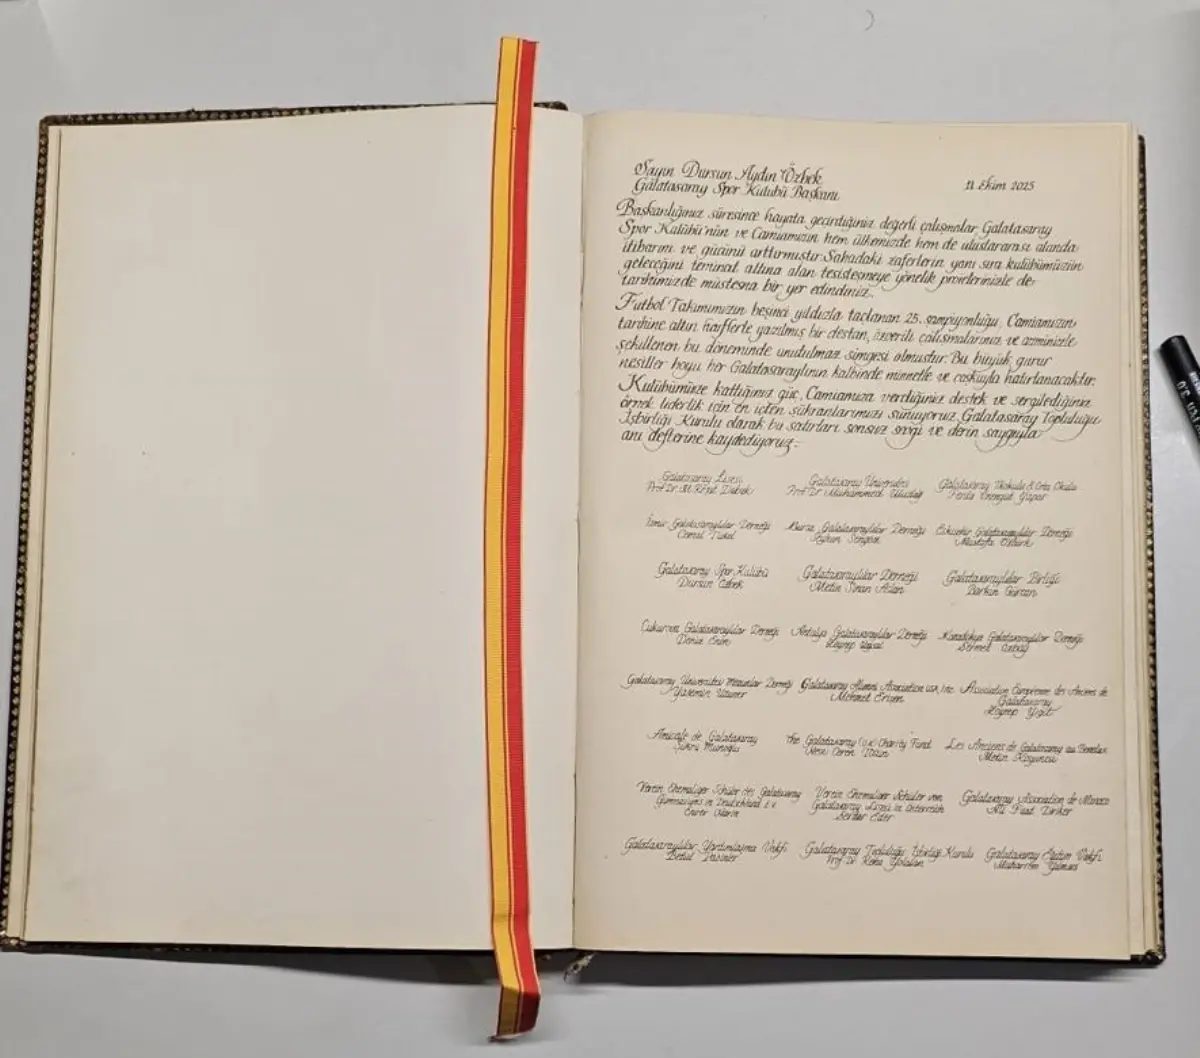 Sayın Dursun Aydın Özbek
Galatasaray Spor Kulübü Başkanı
11 Ekim 2025
Başkanlığınız süresince hayata geçirdiğiniz değerli çalışmalar Galatasaray
Spor Kulübü'nün ve Camiamızın hem ülkemizde hem de uluslararası alanda
itibarını ve gücünü arttırmıştır. Sahadaki zaferlerin yanı sıra kulübümüzün
geleceğini teminat altına alan tesisleşmeye yönelik projelerinizle de
tarihimizde müstesna bir yer edindiniz.
Futbol Takımımızın beşinci yıldızla taçlanan 25. şampiyonluğu, Camiamızın
tarihine altın harflerle yazılmış bir destan, özverili çalışmalarınız ve azminizle
şekillenen bu döneminde unutulmaz simgesi olmuştur. Bu büyük gurur
nesiller boyu her Galatasaraylının kalbinde minnetle ve coşkuyla hatırlanacaktır.
Kulübümüze kattığınız güç, Camiamıza verdiğiniz destek ve sergilediğiniz
örnek liderlik için en içten şükranlarımızı sunuyoruz. Galatasaray Topluluğu
İşbirliği Kurulu olarak bu satırları sonsuz sevgi ve derin saygıyla
anı defterine kaydediyoruz.
Galatasaray Lisesi
Prof. Dr.
Galatasaray Üniversitesi
Prof. Dr. Muhammed Uludağ
Galatasaray İlkokulu & Orta Okulu
İzmir Galatasaraylılar Derneği
Cemal Tükel
Bursa Galatasaraylılar Derneği
Ceyhun Şengör
Eskişehir Galatasaraylılar Derneği
Mustafa Öztürk
Galatasaray Spor Kulübü
Dursun Özbek
Galatasaraylılar Derneği
Metin Sinan Aslan
Galatasaraylılar Birliği
Gürcan
Çukurova Galatasaraylılar Derneği
Deniz
Antalya Galatasaraylılar Derneği
Zeynep Uysal
Karadeniz Galatasaraylılar Derneği
Galatasaray Üniversitesi Mezunlar Derneği
Yasemin
Galatasaray Alumni Association USA, Inc.
Mehmet
Association Européenne des Anciens de
Galatasaray
Zeynep Yiğit
Amicale de Galatasaray
Şükrü
The Galatasaray (UK) Charity Fund
Ceren
Les Anciens de Galatasaray au Benelux
Metin
Verein Ehemaliger Schüler des Galatasaray
Gymnasiums in Deutschland e.V.
Verein Ehemaliger Schüler vom
Galatasaray Lisesi in Österreich
Serdar Eder
Galatasaray Association de Monaco
Ali Fuat
Galatasaraylılar Yardımlaşma Vakfı
Betül
Galatasaray Topluluğu İşbirliği Kurulu
Prof. Dr.
Galatasaray Eğitim Vakfı
Muharrem Yılmaz